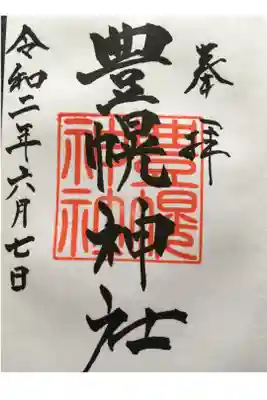 奉拝
豊幌神社
令和二年六月七日
豊幌神社